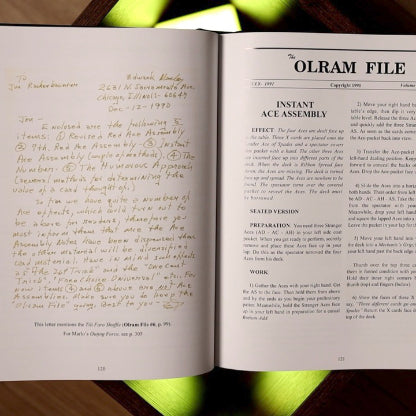 To Edward Marlo
Jon Racherbaumer 2631 W Sacramento Ave
Chicago, Illinois- 60647
Dec-12-1990
Jon —
Enclosed are the following 5
items: ① Revised Red Ace Assembly
② 9th. Red Ace Assembly - ③ Instant
Ace Assembly (couple of methods). ④ The
Number. ⑤ The Humorous Approach
(several methods for determining the
value of a card thought of.)
So far we have quite a number of
Ace effects, which could turn out to
be a bore for readers, therefore you
must inform them that once the Ace
Assembly Notes have been dispensed then
the other material will be diversified
card material. I have in mind such effects
as the "26th Trick" and the "One Out
Trick", "Free Choice Universal" etc. For
now items ④ and ⑤ above are not Ace
Assemblies. Make sure you do keep the
"Olram File" going. Best to you —
This letter mentions the Tili Faro Shuffle (Olram File #6, p. 99).
For Marlo's Outjog Force, see p. 305
120
The
OLRAM FILE
1991
Copyright 1990
Volume
INSTANT
ACE ASSEMBLY
EFFECT: The four Aces are dealt face up
on the table. Three X cards are placed onto the
Leader Ace of Spades and a spectator covers
one packet with a hand. The other three Aces
are inserted face up into different parts of the
deck. When the deck is Ribbon Spread face
down, the Aces are missing. The deck is turned
face up and spread. The Aces are nowhere to be
found. The spectator turns over the covered
packet to reveal the Aces. The deck must
be borrowed.
SEATED VERSION
PREPARATION: You need four Stranger
Aces (AD - AC - AH - AS) in your left side coat
pocket. When you get ready to perform, secretly
remove and place these Aces face up in your
lap. Do this as the spectator removed the four
Aces from his deck.
WORK
1) Gather the Aces with your right hand. Get
the AS to the face. Then hold them from above
and by the ends as you begin your preliminary
patter. Meanwhile, hold the Stranger Aces face
up in your left hand in preparation for a casual
Rumba-Add.
2) Move your right hand
table's edge, then dip it very
table level. Release the three Aces
and quickly add the three Stranger
AS. As soon as the switch
the Ace packet to the table.
3) Transfer the Ace-packet
left-hand dealing position.
forward to retrieve the
Drop the Aces onto the
the AS.
4) Slide the Aces into a
both hands. Their order from left
be AD - AC - AH - AS. Take the
from the spectator with your
Meanwhile, drop your left hand
and square the lapped Aces into a
Leave the packet in your lap for the
5) Move your left hand to
the deck into a Mechanic's Grip,
your left hand past the back edge
Thumb over the top three
there is formed condition with your
Hold these inner corners
thumb (top) and fingers (below).
6) Show the faces of these X
say, "Three different cards go onto
Spades." Return the X cards face
top of the deck.
121